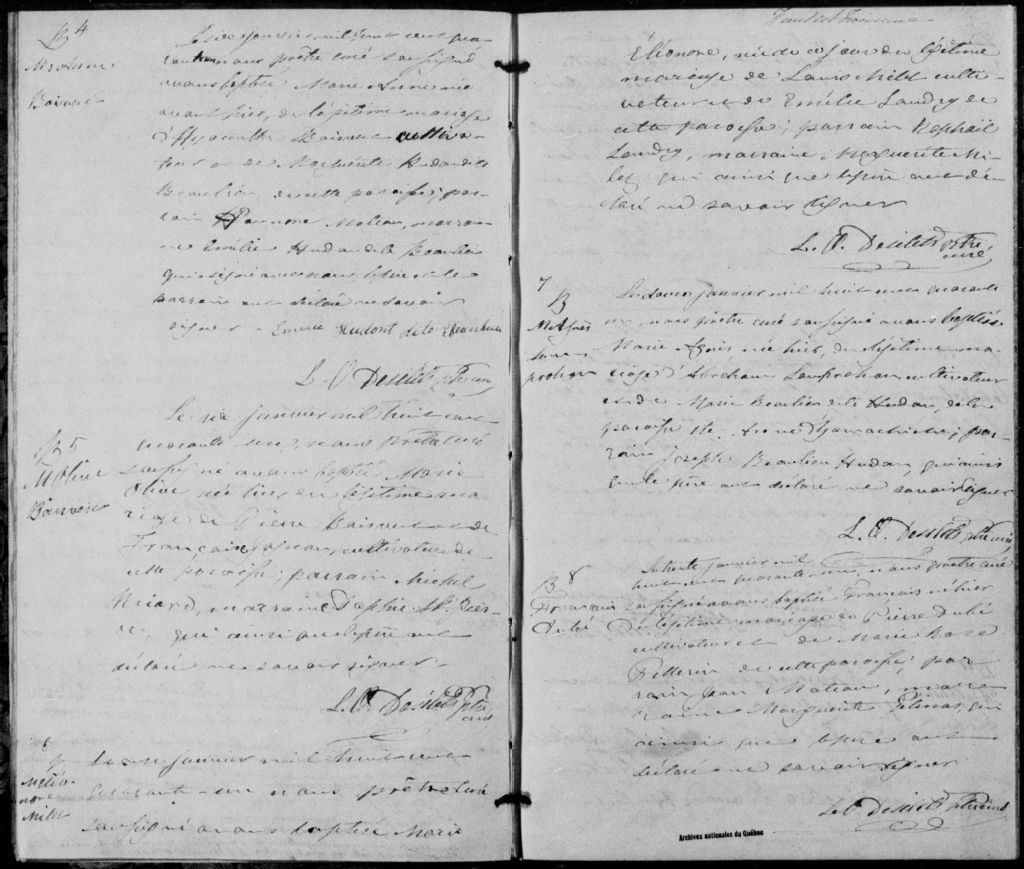 B 4
Boisvert
janvier mil huit cent qua-
rante un nous prêtre curé soussigné
avons baptisé Marie née
avant hier, du légitime mariage
d'Hyacinthe Boisvert cultiva-
teur et de Marguerite Hudon dit
Beaulieu, de cette paroisse; par-
rain Moteau, marrai-
ne Emilie Hudon dit Beaulieu
qui a signé avec nous, le père et le
parrain ont déclaré ne savoir
signer - Emilie Hudont dite
L. O. Desilets Ptre curé
B 5
M Olive
Boisvert
Le janvier mil huit cent
quarante un, nous prêtre curé
soussigné avons baptisé Marie
Olive née hier du légitime ma-
riage de Pierre Boisvert et de
Françoise cultivateur de
cette paroisse; parrain Michel
marraine Sophie St. Pier-
re, qui ainsi que le père ont
déclaré ne savoir signer
L. O. Desilets Ptre
curé
6
M Eléo-
nore
Milet
Le janvier mil huit cent
quarante-un nous prêtre curé
soussigné avons baptisé Marie
Eléonore, née du jour du légitime
mariage de Louis Milet culti-
vateur et de Emélie Landry de
cette paroisse; parrain Raphael
Landry, marraine Marguerite Mi-
let qui ainsi que le père ont dé-
claré ne savoir signer
L. O. Desilets Ptre
curé
7
B
M Agnès
Lam-
prohon
Le janvier mil huit cent quarante
un, nous prêtre curé soussigné avons baptisé
Marie Agnès née hier, du légitime ma-
riage d'Abraham Lamprohon, cultivateur
et de Marie Beaulieu dite Hudon, de la
paroisse Ste. Anne d'Yamachiche; par-
rain Joseph Beaulieu Hudon qui ainsi
que le père ont déclaré ne savoir signer
L. O. Desilets Ptre curé
B 8
François
Dubé
Le trente janvier mil
huit cent quarante un nous prêtre curé
soussigné avons baptisé François né hier
du légitime mariage de Pierre Dubé
cultivateur et de Marie Rose
Pellerin de cette paroisse; par-
rain Jean Moteau, mar-
raine Marguerite Gélinas, qui
ainsi que le père ont
déclaré ne savoir signer
L. O. Desilets Ptre curé
Archives nationales du Québec